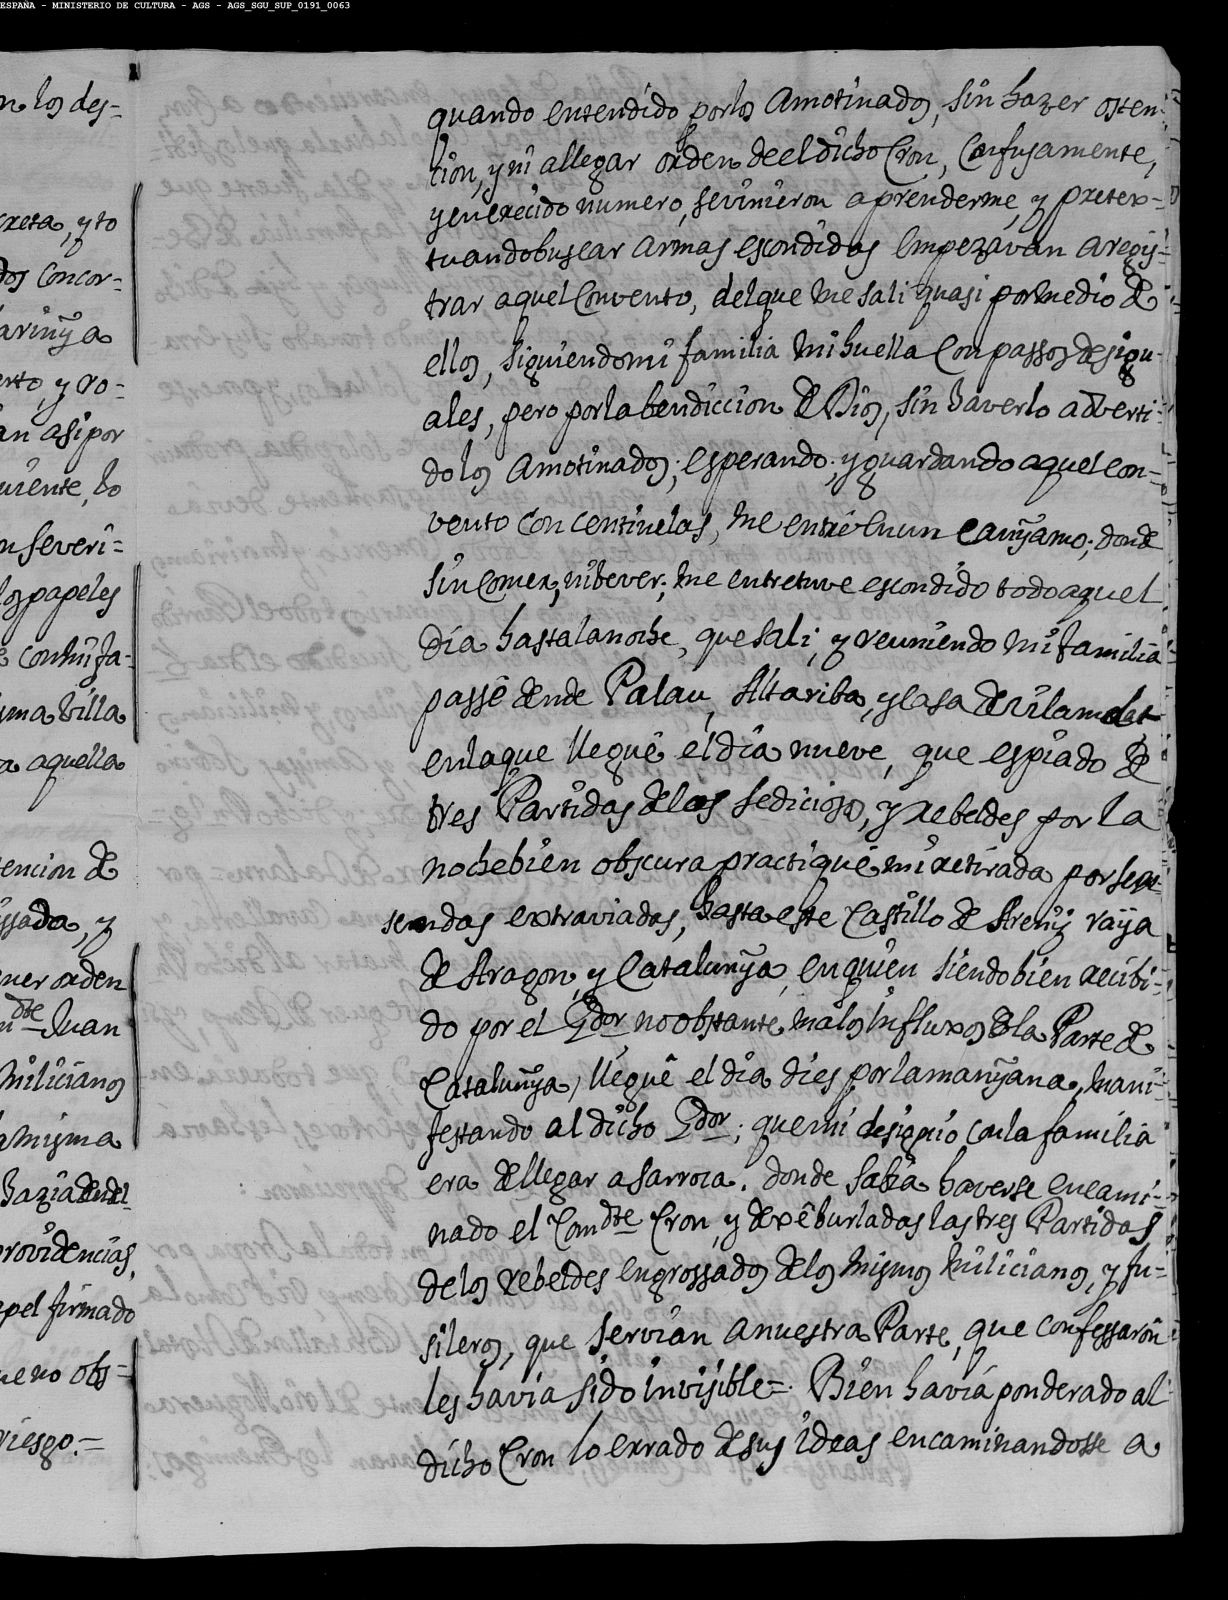 ESPAÑA - MINISTERIO DE CULTURA - AGS - AGS_SGU_SUP_0191_0063
n los des=
xeta, y to
dos concor=
ariñya
erto, y ro=
an asi por
uiente, lo
n severi=
los papeles
e con mi fa=
sma Villa
a aquella
tencion de
issada, y
ner orden
n dte Juan
Miliçianos
a misma
hazia en el
providencias,
apel firmado
ue no obs=
riesgo.=
quando entendido por los Amotinados, sin hazer osten=
cion, y ni allegar orden de el dicho Cron, Confusamente,
y en crecido numero, se vinieron a prenderme, y pretex=
tuando buscar Armas escondidas Empezavan a regis=
trar aquel Convento, del que me sali quasi por medio de
ellos, siguiendo mi familia mi huella Con passos desigu=
ales, pero por la bendiccion de Dios, sin haverlo adverti=
do los Amotinados; esperando, y guardando aquel con=
vento con centinelas, me entré en un cañyamo; donde
sin Comer, ni bever; me entretuve escondido todo aquel
dia hasta la noche, que sali, y reuniendo mi familia
passê dende Palau, Altariba, y Casa de Vilamdat
en la que lleguê el dia nueve, que espiado de
tres Partidas de los sediciosos, y rebeldes por la
noche bien obscura practiquê mi retirada por sen=
sendas extraviadas, hasta este Castillo de Areny raya
de Aragon, y Cataluñya, en quien siendo bien recibi=
do por el Gdor, no obstante malos influxos de la Parte de
Cataluñya, lleguê el dia dies por la mañyana, mani=
festando al dicho Gdor; que mi designio con la familia
era de llegar a Sarroca. donde sabia haverse encami=
nado el Comdte Cron, y dexê burladas las tres Partidas
de los rebeldes engrossados de los mismos miliçianos, y fu=
sileros, que servian a nuestra Parte, que confessaron
les havia sido invisible=. Bien havia ponderado al
dicho Cron lo errado de sus ideas encaminandosse a